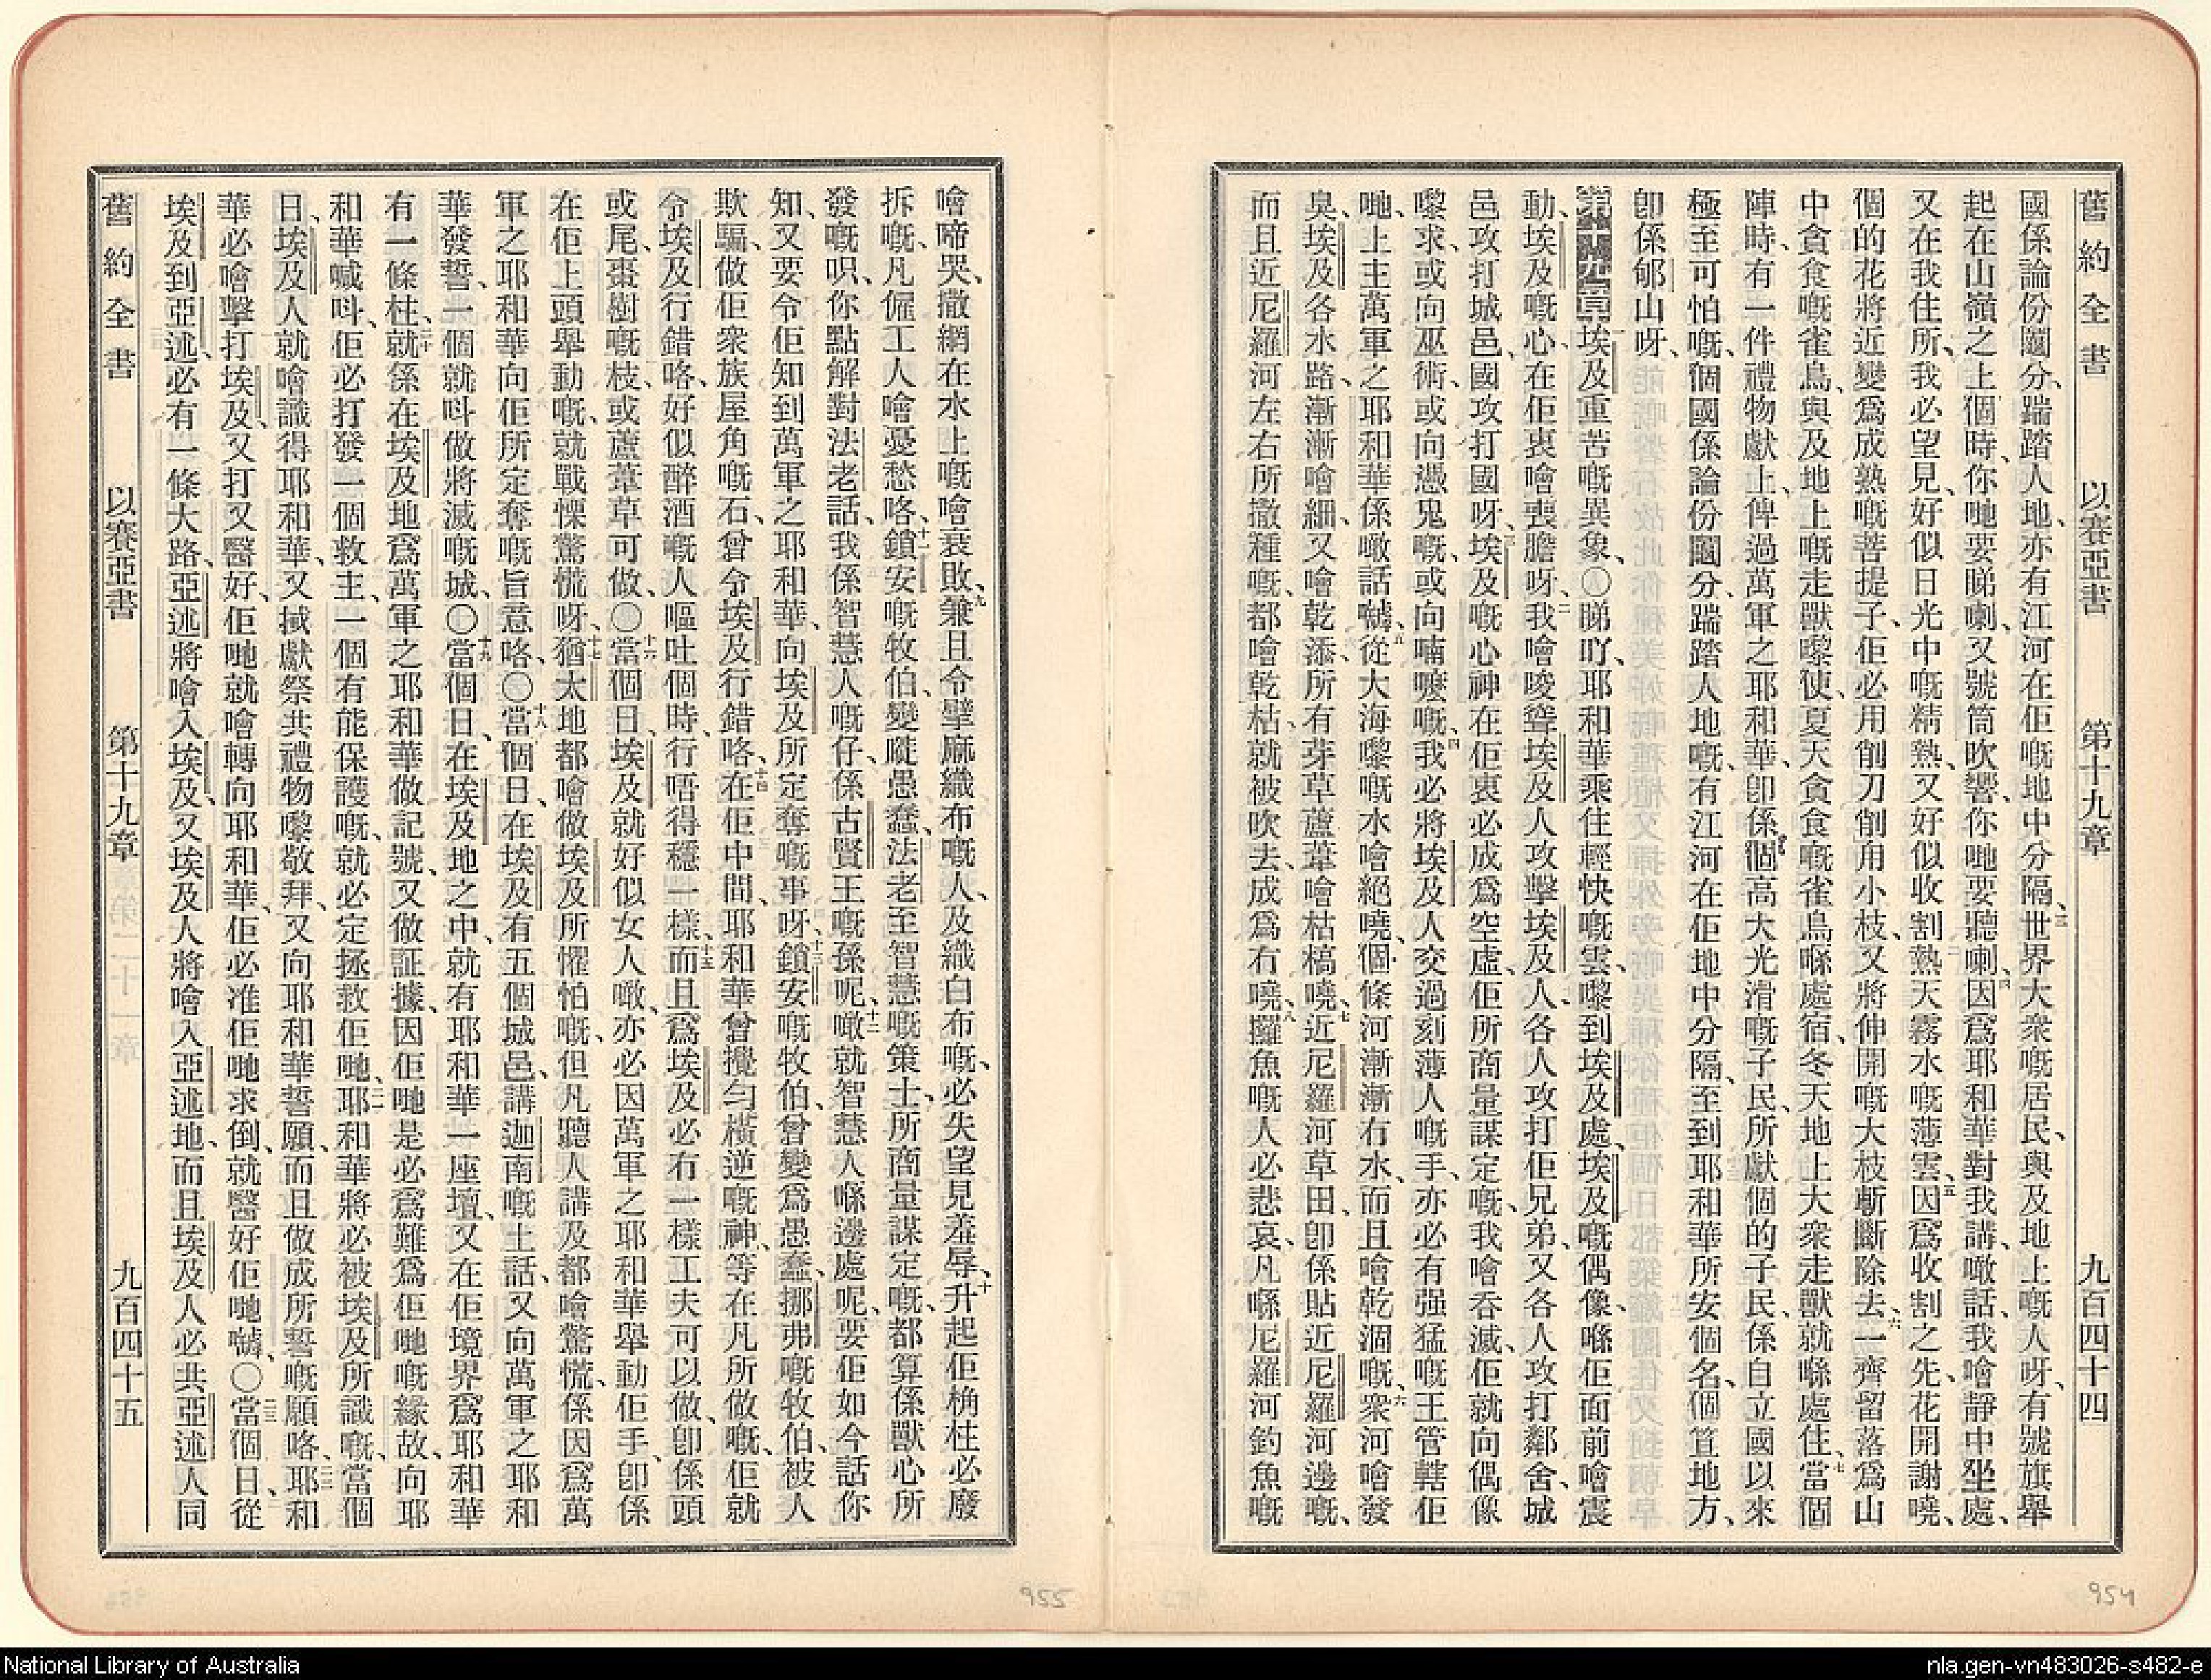 舊約全書 以賽亞書 第十九章 九百四十四
國係論份闊分、踹踏人地、亦有江河在佢嘅地中分隔、三世界大衆嘅居民、與及地上嘅人呀、有號旗舉
起在山嶺之上個時、你哋要睇喇、又號筒吹響、你哋要聽喇、四因爲耶和華對我講、噉話、我噲靜中坐處、
又在我住所、我必望見、好似日光中嘅精熱、又好似收割熱天霧水嘅薄雲、五因爲收割之先、花開謝嘵、
個的花將近變爲成熟嘅菩提子、佢必用削刀削用小枝、又將伸開嘅大枝斬斷除去、六一齊留落爲山
中貪食嘅雀鳥、與及地上嘅走獸嚟使、夏天貪食嘅雀鳥喺處宿、冬天地上大衆走獸就喺處住、七當個
陣時、有一件禮物獻上、俾過萬軍之耶和華、卽係個高大光滑嘅子民、所獻個的子民、係自立國以來
極至可怕嘅、個國係論份闊分、踹踏人地嘅、有江河在佢地中分隔、至到耶和華所安個名、個笪地方、
卽係郇山呀、
第十九章 一埃及重苦嘅異象、〇睇吖、耶和華乘住輕快嘅雲、嚟到埃及處、埃及嘅偶像、喺佢面前噲震
動、埃及嘅心在佢裏噲喪膽呀、二我噲唆聳埃及人攻擊埃及人、各人攻打佢兄弟、又各人攻打鄰舍、城
邑攻打城邑、國攻打國呀、三埃及嘅心神在佢裏必成爲空虛、佢所商量謀定嘅、我噲吞滅、佢就向偶像
嚟求、或向巫術、或向憑鬼嘅、或向喃嚒嘅、四我必將埃及人交過刻薄人嘅手、亦必有强猛嘅王管轄佢
哋、上主萬軍之耶和華係噉話嚹、五從大海嚟嘅水噲絕嘵、個條河漸漸冇水、而且噲乾涸嘅、六衆河噲發
臭、埃及各水路、漸漸噲細、又噲乾添、所有芽草蘆葦噲枯槁嘵、七近尼羅河草田、卽係貼近尼羅河邊嘅、
而且近尼羅河左右所撒種嘅、都噲乾枯、就被吹去、成爲冇嘵、八攞魚嘅人必悲哀、凡喺尼羅河釣魚嘅
噲啼哭、撒網在水上嘅噲衰敗、九兼且令擘麻織布嘅人、及織白布嘅、必失望見羞辱、十升起佢桷柱必廢
拆嘅、凡僱工人噲憂愁咯、十一鎖安嘅牧伯、變嘥愚蠢、法老至智慧嘅策士、所商量謀定嘅、都算係獸心所
發嘅呮、你點解對法老話、我係智慧人嘅仔、係古賢王嘅孫呢、十二噉就智慧人喺邊處呢、要佢如今話你
知、又要令佢知到萬軍之耶和華、向埃及所定奪嘅事呀、十三鎖安嘅牧伯、曾變爲愚蠢、挪弗嘅牧伯、被人
欺騙、做佢衆族屋角嘅石、曾令埃及行錯咯、十四在佢中間、耶和華曾攪勻橫逆嘅神、等在凡所做嘅、佢就
令埃及行錯咯、好似醉酒嘅人嘔吐個時、行唔得穩一樣、十五而且爲埃及必冇一樣工夫可以做、卽係頭
或尾、棗樹嘅枝、或蘆葦草可做、〇十六當個日、埃及就好似女人噉、亦必因萬軍之耶和華舉動佢手、卽係
在佢上頭舉動嘅、就戰慄驚慌呀、十七猶太地都噲做埃及所懼怕嘅、但凡聽人講及都噲驚慌、係因爲萬
軍之耶和華向佢所定奪嘅旨意咯、〇十八當個日、在埃及有五個城邑、講迦南嘅土話、又向萬軍之耶和
華發誓、一個就呌做將滅嘅城、〇十九當個日、在埃及地之中、就有耶和華一座壇、又在佢境界爲耶和華
有一條柱、二十就係在埃及地爲萬軍之耶和華做記號、又做証據、因佢哋是必爲難爲佢哋嘅緣故、向耶
和華喊呌、佢必打發一個救主、一個有能保護嘅、就必定拯救佢哋、二一耶和華將必被埃及所識嘅、當個
日、埃及人就噲識得耶和華、又搣獻祭共禮物嚟敬拜、又向耶和華誓願、而且做成所誓嘅願咯、二二耶和
華必噲擊打埃及、又打又醫好、佢哋就噲轉向耶和華、佢必准佢哋求倒、就醫好佢哋嚹、〇二三當個日、從
埃及到亞述必有一條大路、亞述將噲入埃及、又埃及人將噲入亞述地、而且埃及人必共亞述人同
舊約全書 以賽亞書 第十九章 九百四十五
955
954
National Library of Australia
nla.gen-vn483026-s482-e